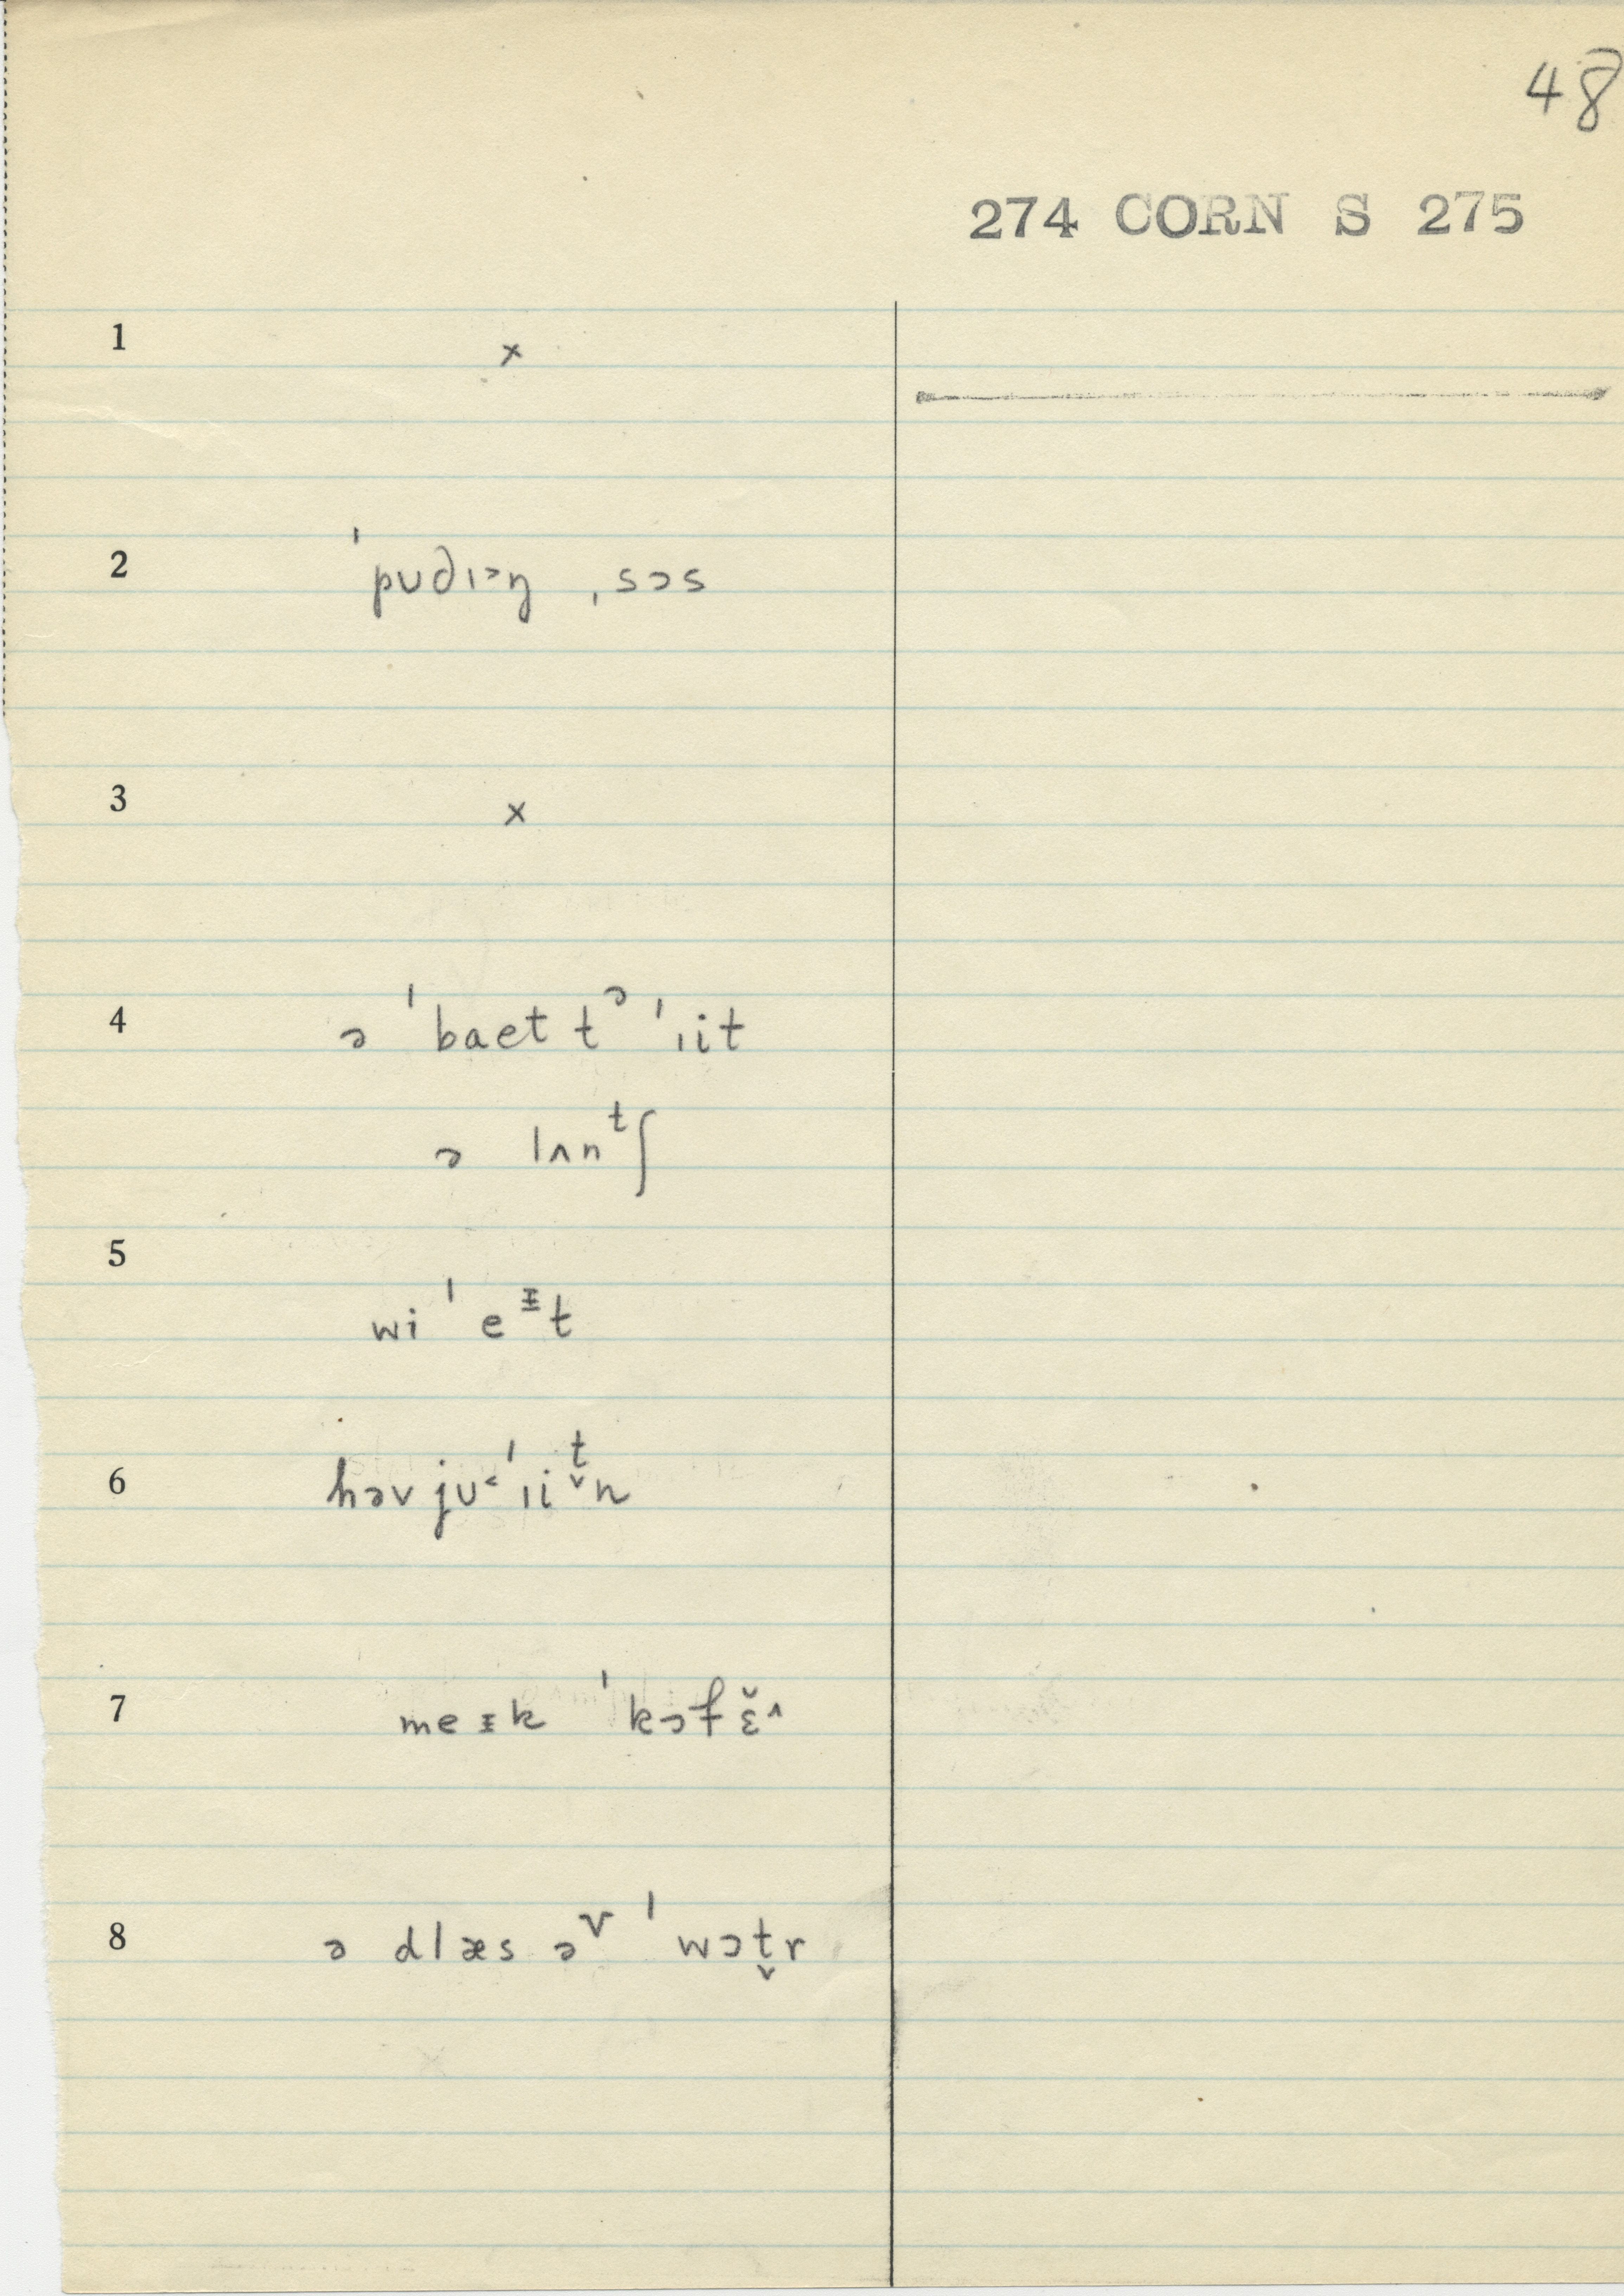 48
274 CORN S 275
1 ×
2 ˈpᴜdɪ˃ŋ ˌsɔs
3 ×
4 ə ˈbaet tᵊ ˈɪit
ə lʌnᵗʃ
5
wi ˈ eᶧt
6 həv jᴜ˂ ˈɪit̬n
7 meᵻk ˈkɔfɛ̆˄
8 ə dlæs əᵛ ˈwɔt̬r